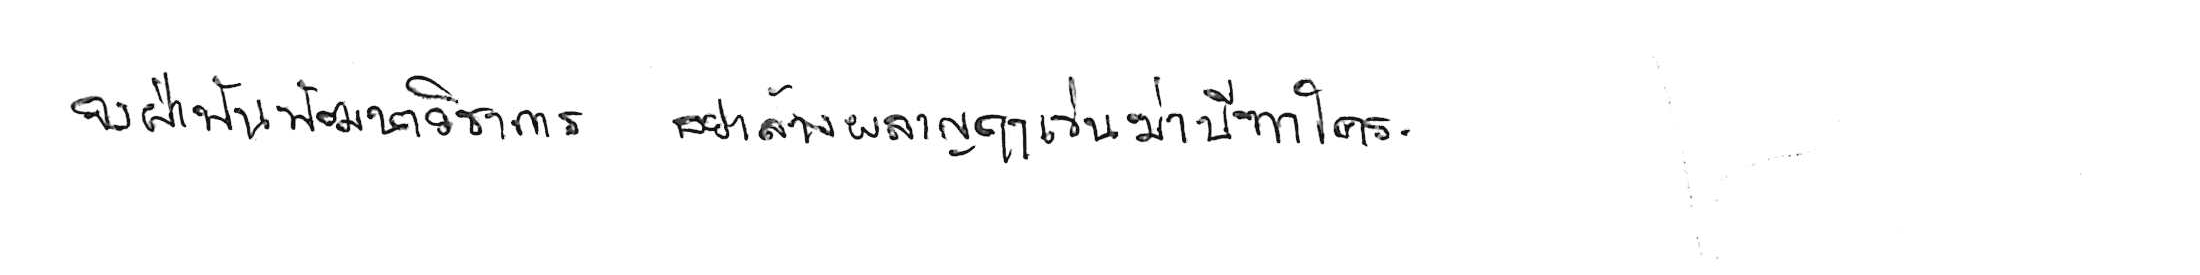 จงฝ่าฟันพัฒนาวิชาการ อย่าล้างผลาญฤๅเข่นฆ่าบีฑาใคร.